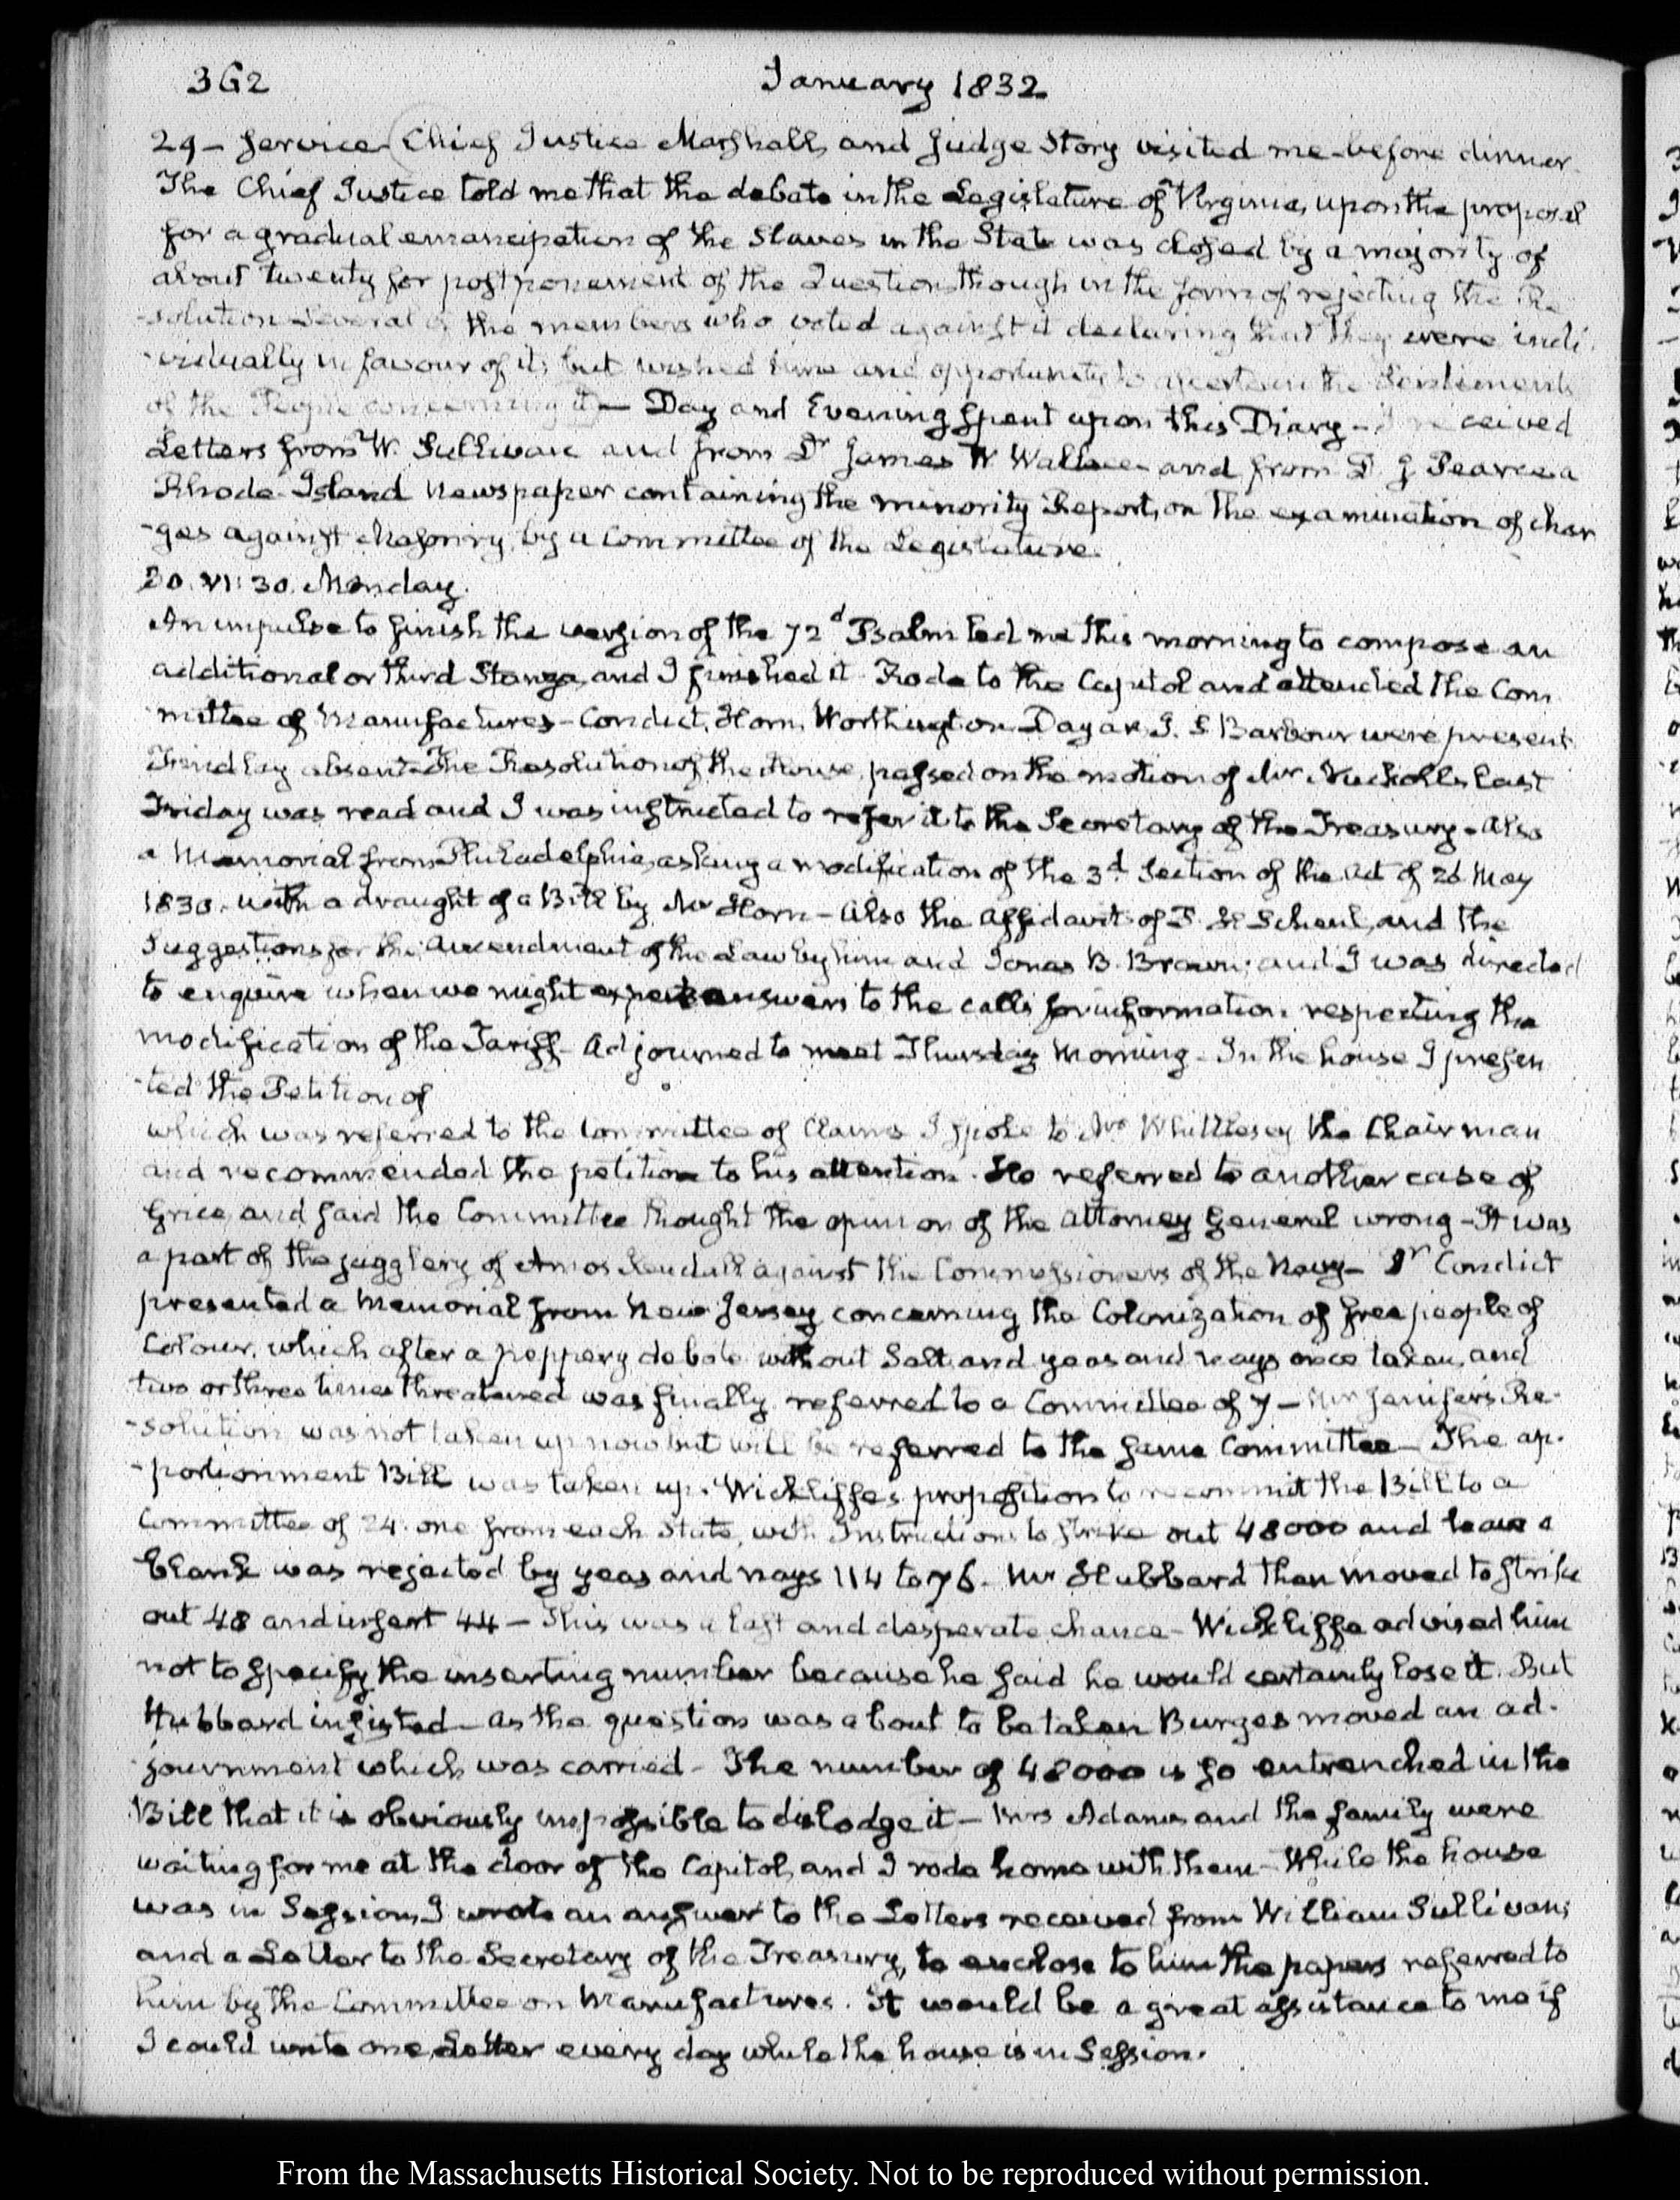 362 January 1832
29 – Service – Chief Justice Marshall, and Judge Story visited me before dinner.
The Chief Justice told me that the debate in the Legislature of Virginia, upon the proposal
for a gradual emancipation of the Slaves in the State was closed by a majority of
about twenty for postponement of the Question though in the form of rejecting the Re
-solution several of the members who voted against it declaring that they were indi
-vidually in favour of it; but wished time and opportunity to ascertain the Sentiments
of the People concerning it – Day and Evening spent upon this Diary – I received
Letters from W. Sullivan and from Dr James W Wallace and from D. J Pearce a
Rhode-Island Newspaper containing the minority Report, on the examination of char
-ges against Masonry, by a Committee of the Legislature.
30. VI: 30. Monday.
An impulse to finish the version of the 72d Psalm led me this morning to compose an
additional or third Stanza, and I finished it. Rode to the Capitol and attended the Com
mittee of Manufactures – Condict, Horn, Worthington Dayan, J. S Barbour were present
Findlay absent – The Resolution of the House, passed on the motion of Mr Nuckolls last
Friday was read and I was instructed to refer it to the Secretary of the Treasury – Also
a Memorial from Philadelphia, asking a modification of the 3d Section of the Act of 28 May
1830. with a draught of a Bill by Mr Horn – Also the Affidavit of F. and the
Suggestions for the amendment of the Law by him and Jonas B. Brown; and I was directed
to enquire when we might expect answers to the calls for information respecting the
modification of the Tariff – Adjourned to meet Thursday Morning – In the house I presen
-ted the Petition of
which was referred to the Committee of Claims I spoke to Mr Whittlesey the Chairman
and recommended the petition to his attention. He referred to another case of
Grice, and said the Committee thought the opinion of the Attorney General wrong – It was
a part of the jugglery of Amos Kendall against the Commissioners of the Navy – Dr Condict
presented a Memorial from New-Jersey concerning the Colonization of free people of
Colour, which after a peppery debate without Salt, and yeas and nays once taken, and
two or three times threatened was finally referred to a Committee of 7 – Mr Jenifer's Re-
-solution was not taken up now but will be referred to the same Committee – The ap-
-portionment Bill was taken up. Wickliffe's proposition to recommit the Bill to a
Committee of 24. one from each State, with Instructions to strike out 48000 and leave a
blank was rejected by yeas and nays 114 to 76 – Mr Hubbard then moved to strike
out 48 and insert 44 – This was a last and desperate chance – Wickliffe advised him
not to specify the inserting number because he said he would certainly lose it. But
Hubbard insisted – as the question was about to be taken Burges moved an ad-
-journment which was carried – The number of 48000 is so entrenched in the
Bill that it is obviously impossible to dislodge it – Mrs Adams and the family were
waiting for me at the door of the Capitol, and I rode home with them – While the house
was in Session, I wrote an answer to the Letters received from William Sullivan;
and a Letter to the Secretary of the Treasury, to enclose to him the papers referred to
him by the Committee on Manufactures. It would be a great assistance to me if
I could write one Letter every day while the house is in Session.
From the Massachusetts Historical Society. Not to be reproduced without permission.